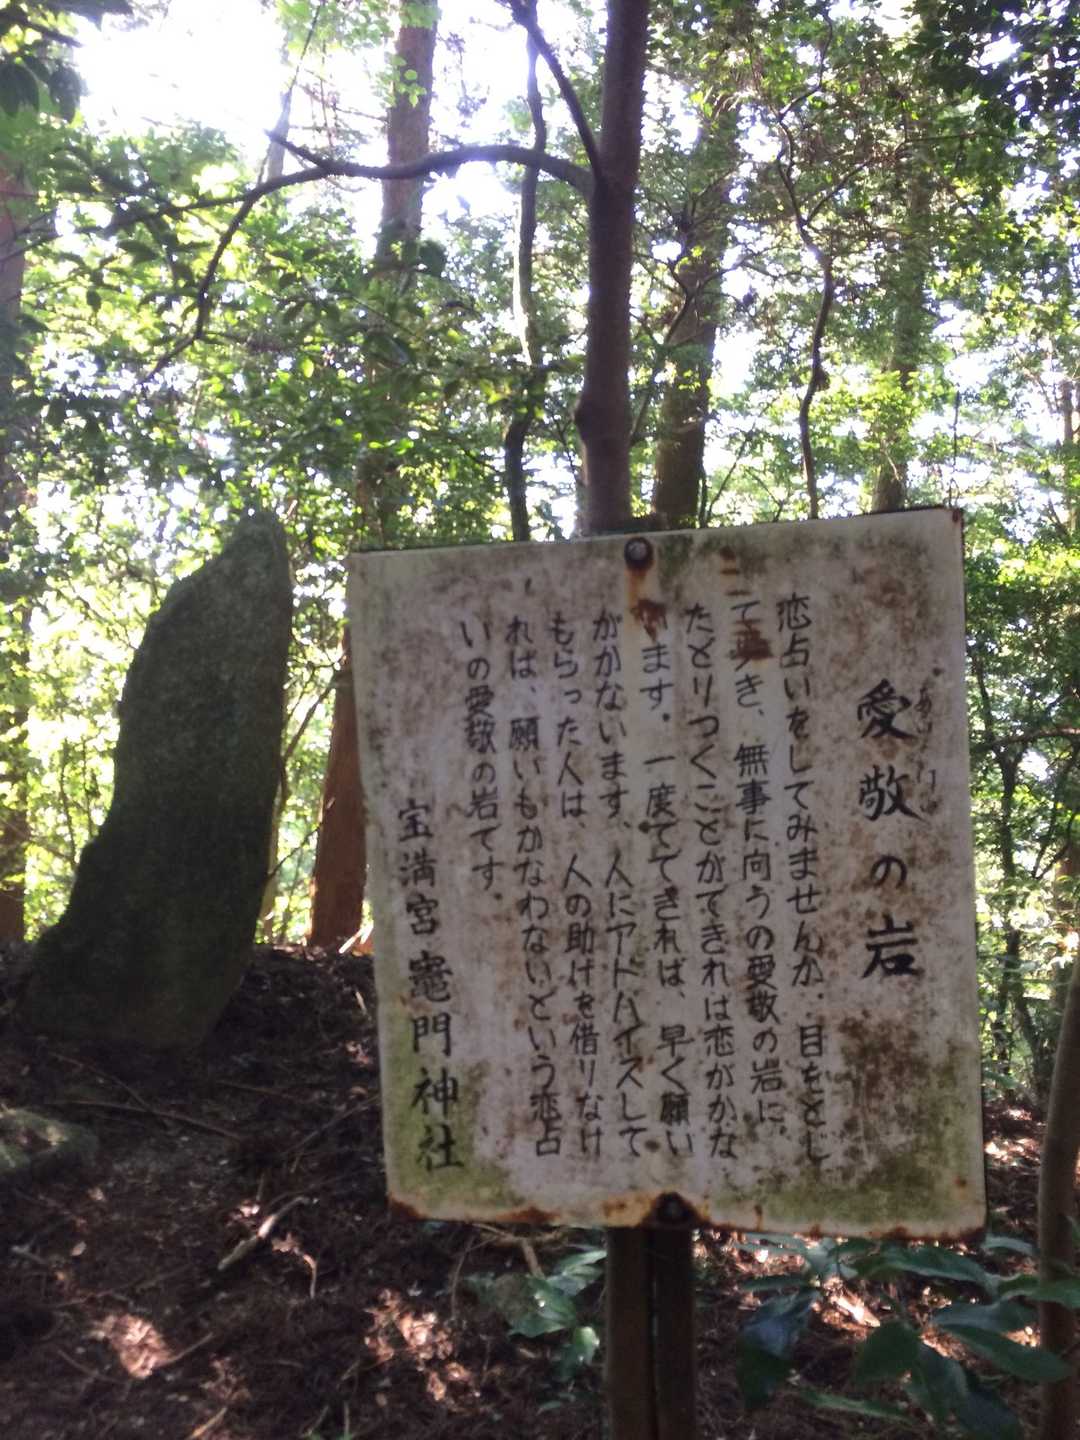 愛敬の岩
恋占いをしてみませんか．目をとじ
てき、無事に向うの愛敬の岩に
たどりつくことができれば恋がかな
います。一度でできれば、早く願い
がかないます、人にアドバイスして
もらった人は、人の助けを借りなけ
れば、願いもかなわないという恋占
いの愛敬の岩です。
宝満宮竈門神社